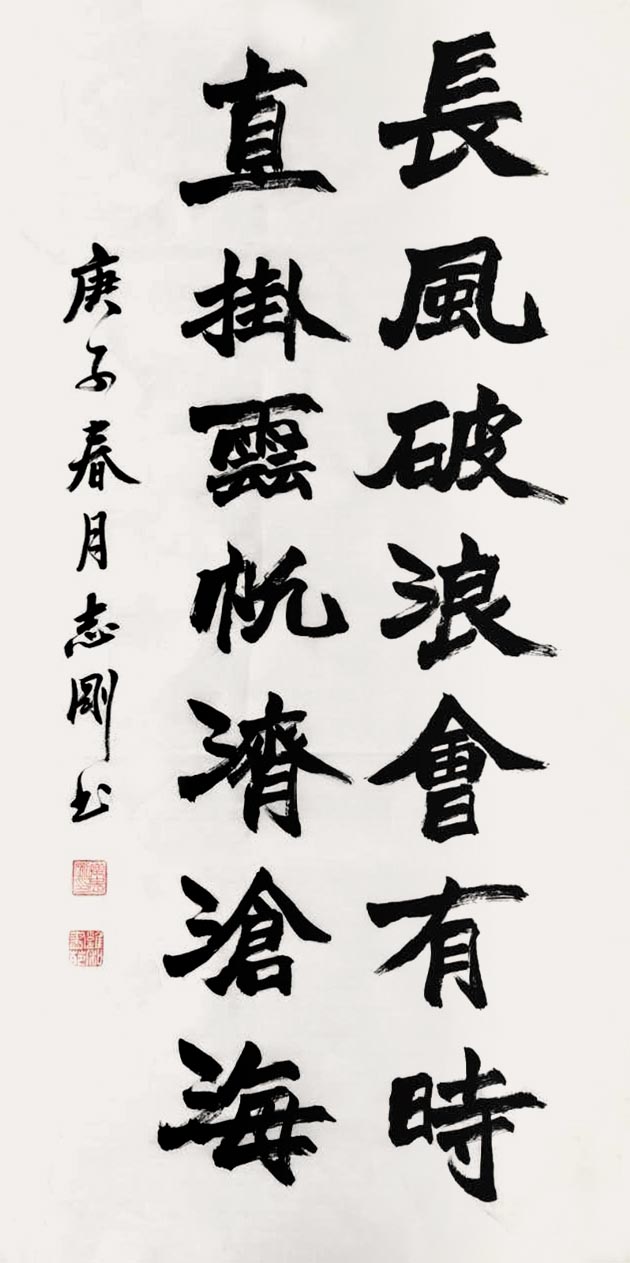 長風破浪會有時
直掛雲帆濟滄海
庚子春月志剛书